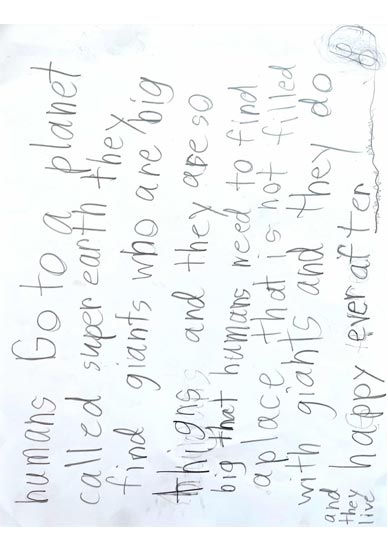 humans Go to a planet
called super earth they
find giants who are big
thigns and they are so
big that humans need to find
a place that is not filled
with giants and they do
and they live happy ever after